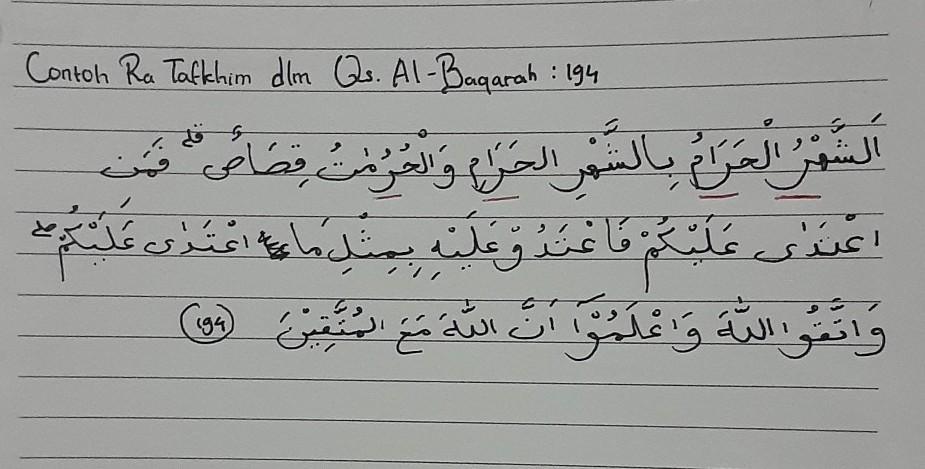 Contoh Ra Tafkhim dlm Qs. Al-Baqarah : 194
اَلشَّهْرُ الْحَرَامُ بِالشَّهْرِ الحَرَامِ وَالْحُرُمٰتُ قِصَاصٌ ۗ فَمَن
اعْتَدٰى عَلَيْكُمْ فَاعْتَدُوْ عَلَيْهِ بِمِثْلِ مَا اعْتَدٰى عَلَيْكُمْ ۖ
وَاتَّقُوا اللّٰهَ وَاعْلَمُوْٓا اَنَّ اللّٰهَ مَعَ المُتَّقِيْنَ (194)